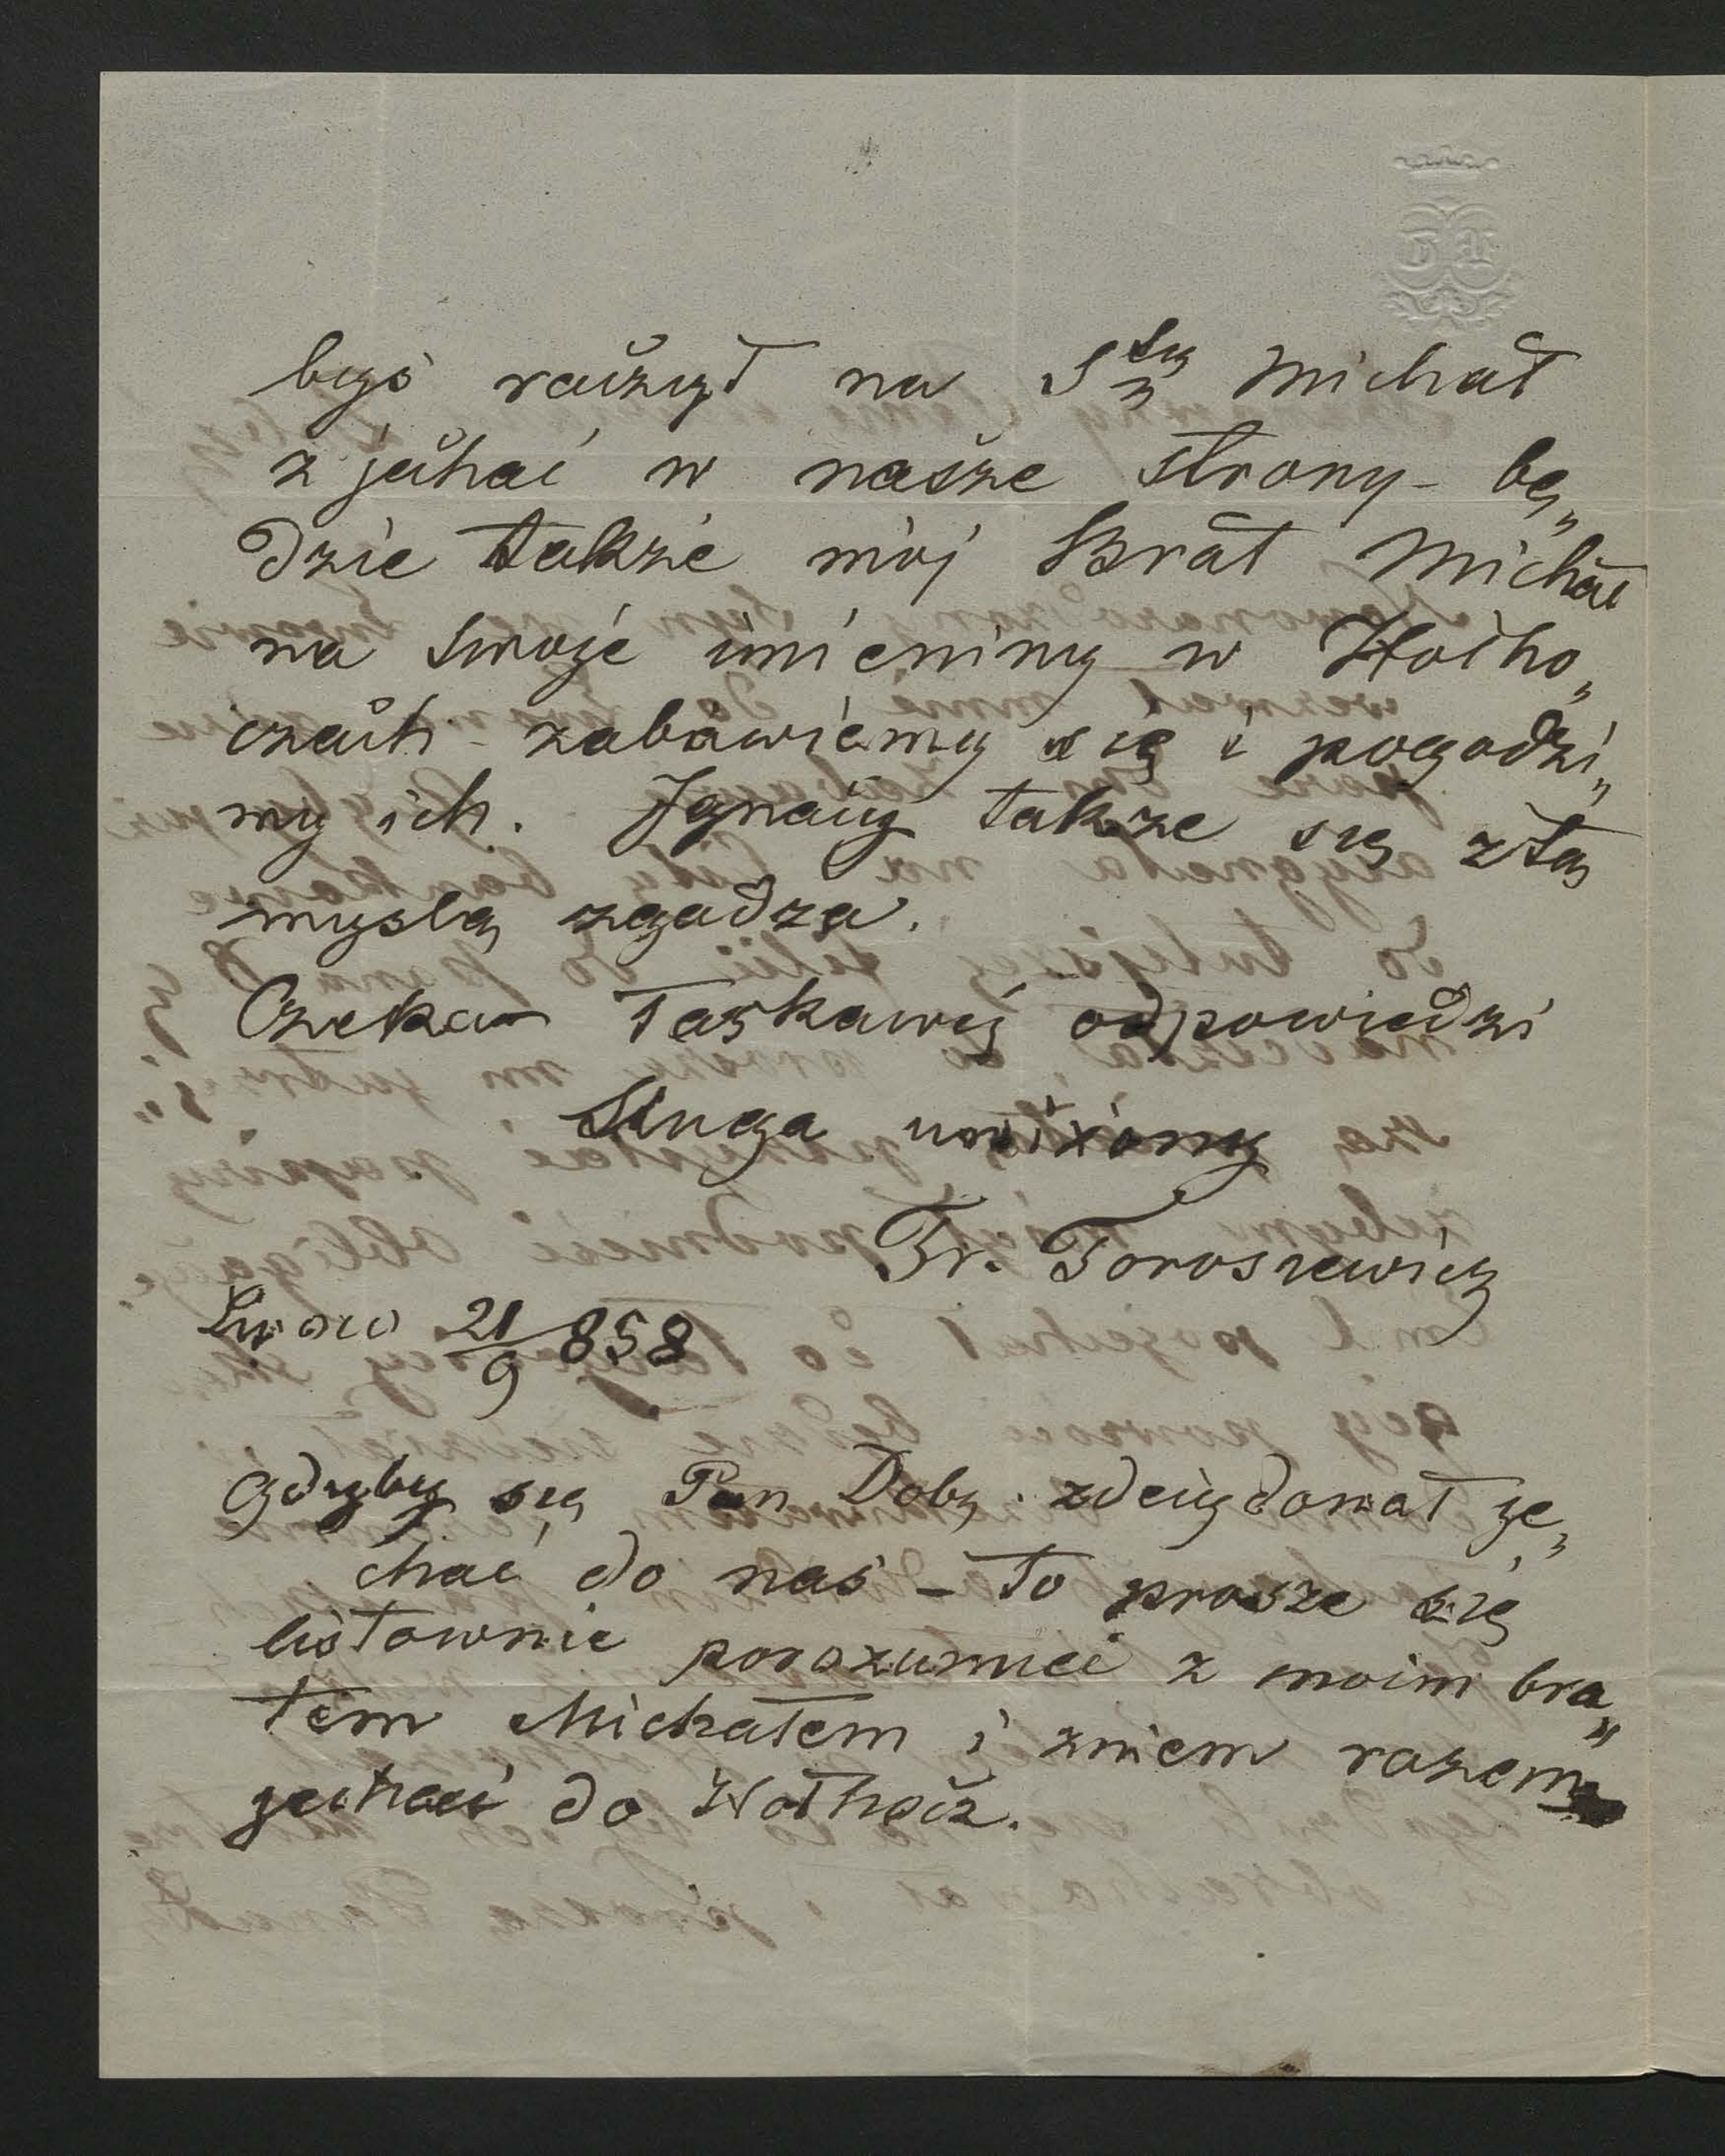 byś raczył na S^ty Michał
zjechać w nasze strony – bę„
dzie także mój Brat Michał
na swoje imieniny w Hołho„
czach – zabawiemy się i pogodzi„
my ich. Ignacy także się z tą
myslą zgadza.
Czekam łaskawej odpowiedzi
Sługa uniżony
Fr. Toroszewicz
Lwow 21/9 858
Gdyby się Pan Dobr. zdecydował je„
chać do nas – to prosze się
listownie porozumieć z moim bra„
tem Michałem i zniem razem
jechać do Hołhocz.